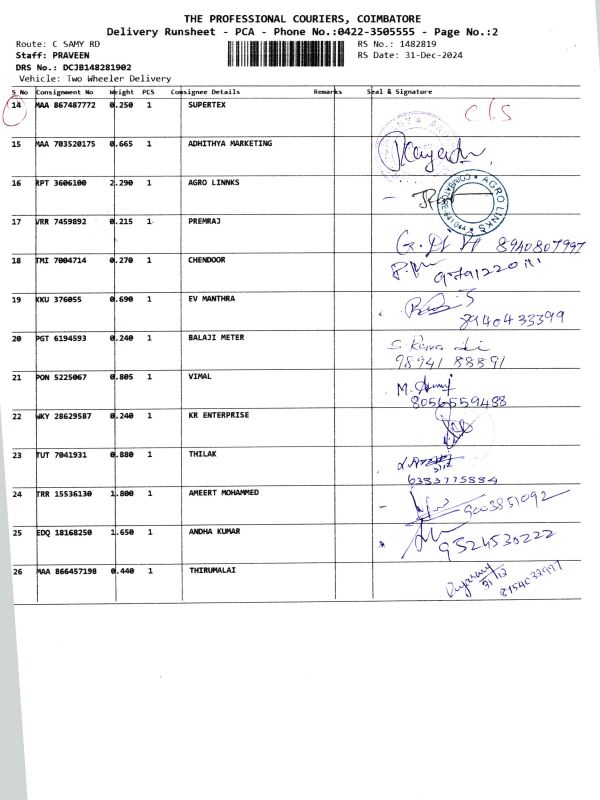 THE PROFESSIONAL COURIERS, COIMBATORE
Delivery Runsheet - PCA - Phone No.:0422-3505555 - Page No.:2
Route: C SAMY RD RS No.: 1482819
Staff: PRAVEEN RS Date: 31-Dec-2024
DRS No.: DCJB148281902
Vehicle: Two Wheeler Delivery
S No Consignment No Weight PCS Consignee Details Remarks Seal & Signature
14 MAA 867487772 0.250 1 SUPERTEX C/S
15 MAA 703520175 0.665 1 ADHITHYA MARKETING
16 RPT 3606100 2.290 1 AGRO LINNKS AGRO LINKS
17 VRR 7459892 0.215 1 PREMRAJ 8940807997
18 TMI 7004714 0.270 1 CHENDOOR
19 KKU 376055 0.690 1 EV MANTHRA 8940433399
20 PGT 6194593 0.240 1 BALAJI METER
98941 88891
21 PON 5225067 0.805 1 VIMAL
8056559488
22 WKY 28629587 0.240 1 KR ENTERPRISE
23 TUT 7041931 0.880 1 THILAK
31/12
6383775884
24 TRR 15536130 1.800 1 AMEERT MOHAMMED 9003851092
25 EDQ 18168250 1.650 1 ANDHA KUMAR 9524530222
26 MAA 866457198 0.440 1 THIRUMALAI
31/12